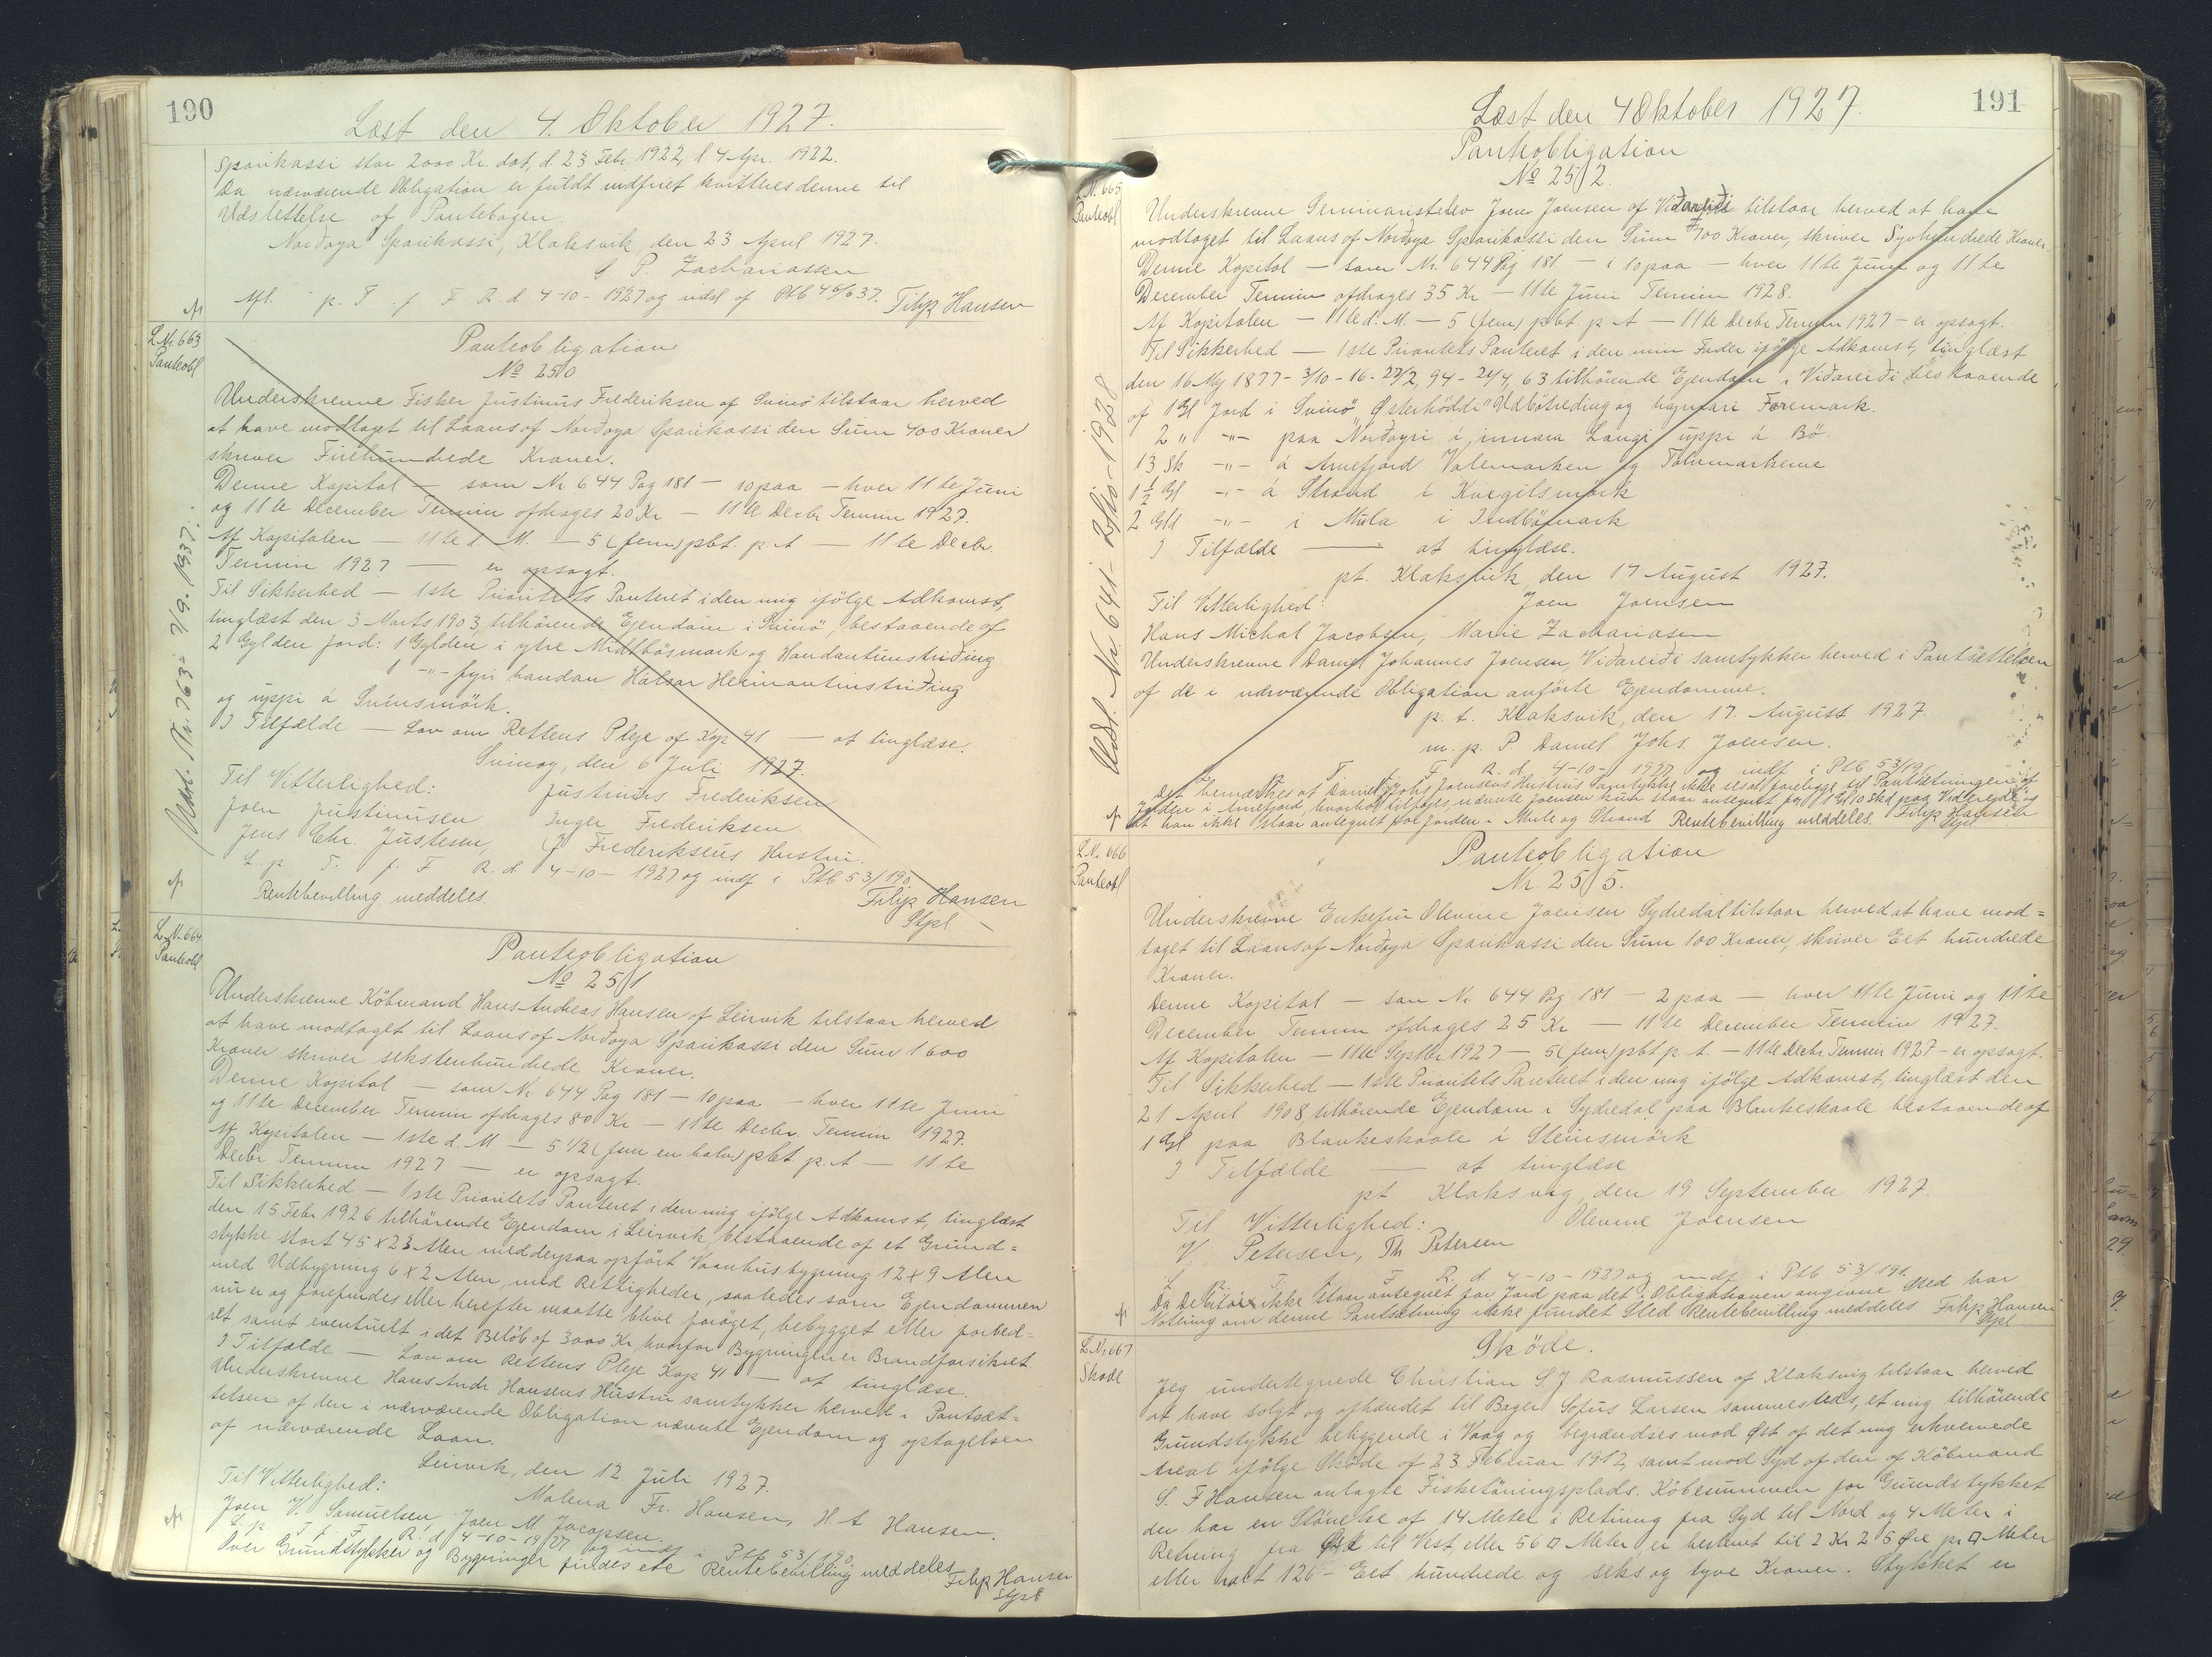 190
Læst den 4. Oktober 1927.
Sparikassi stor 2000 Kr. dat, d. 23 Febr 1922, l 4 Apr. 1922.
Da nærværende Obligation er fuldt indfriet kvitteres denne til
Udslettelse af Pantebogen.
Norðoya Sparikassi, Klaksvik den 23 April 1927.
P. Zachariassen
Afl. p. T. f. F. R. d 4-10-1927 og udsl af Ptb 46/637. Filip Hansen
L.Nr 663
Panteobl
Udsl. Nr. 763- 7/9. 1937.
Panteobligation
No 250
Underskrevne Fisker Justinus Frederiksen af Svinö tilstaar herved
at have modtaget til Laans af Norðoya Sparikassi den Sum 400 Kroner
skriver Firehundrede Kroner.
Denne Kapital — som Nr 644 Pag 181 — 10 paa — hver 11te Juni
og 11te December Termin afdrages 20 Kr — 11te Decbr Termin 1927.
Af Kapitalen — 11te d. M. — 5 (fem) pct. p. A — 11te Decbr.
Termin 1927 — er opsagt.
Til Sikkerhed — 1ste Prioritets Panteret i den mig ifölge Adkomst,
tinglæst den 3 Marts 1903, tilhörende Ejendom i Svinö, bestaaende af
2 Gylden Jord: 1 Gylden i ytre Midtbösmark og Handantunstriðing
1 -"- fyri handan Halsar Heimantunstriðing
og uppi á Svinsmörk.
I Tilfælde — Lov om Rettens Pleje af Kap 41 — at tinglæse.
Svinoy, den 6 Juli 1927.
Til Vitterlighed: Justinus Frederiksen
Joen Justinusen Inger Frederiksen
Jens Chr. Justesen, J Frederiksens Hustru.
L. p. T. f. F R. d 4-10-1927 og indf i Ptb 53/190
Rentebevilling meddeles. Filip Hansen
Stpl.
L.N. 664
Panteobl
Panteobligation
No 251
Underskrevne Köbmand Hans Andreas Hansen af Leirvik tilstaar herved
at have modtaget til Laans af Norðoya Sparikassi den Sum 1600
Kroner skriver sekstenhundrede Kroner.
Denne Kapital — som Nr 644 Pag 181 — 10 paa — hver 11te Juni
og 11te December Termin afdrages 80 Kr — 11te Decbr. Termin 1927.
Af Kapitalen — 1ste d. M — 5 1/2 (fem en halv) pct p. A — 11te
Decbr Termin 1927 — er opsagt.
Til Sikkerhed — 1ste Prioritets Panteret i den mig ifölge Adkomst, tinglæst
den 15 Febr 1926 tilhörende Ejendom i Leirvik, bestaaende af et Grund=
stykke stort 45 x 23 Alen med derpaa opfört Vaanhusbygning 12 x 9 Alen
med Udbygning 6 x 2 Alen, med Rettigheder, saaledes som Ejendommen
nu er og forefindes eller herefter maatte blive foröget, bebygget eller forbed=
ret samt eventuelt i det Belöb af 3000 Kr, hvorfor Bygningen er Brandforsikret
I Tilfælde — Lov om Rettens Pleje Kap 41 — at tinglæse.
Underskrevne Hans Andr Hansens Hustru samtykker herved i Pantsæt=
telsen af den i nærværende Obligation nævnte Ejendom og optagelsen
af nærværende Laan.
Leirvik, den 12. Juli 1927.
Til Vitterlighed: Malena Fr. Hansen, H. A Hansen.
Joen V. Samuelsen, Joen M Jacopsen.
L. p. T. f. F. R. d 4-10-1927 og indf i Ptb 53/190
Over Grundstykker og Bygninger findes ete Rentebevilling meddeles
Filip Hansen
Stpl
191
Læst den 4 Oktober 1927.
L.N. 665
Panteobl
Udsl. Nr. 641- 1928
Panteobligation
No 252.
Underskrevne Seminarielev Joen Joensen af Viðareiði tilstaar herved at have
modtaget til Laans af Norðoya Sparikassi den Sum 700 Kroner, skriver Syvhundrede Kroner.
Denne Kapital — som Nr. 644 Pag 181 — i 10 paa — hver 11te Juni og 11te
December Termin afdrages 35 Kr — 11te Juni Termin 1928.
Af Kapitalen — 11te d. M. — 5 (fem) pct p. A — 11te Decbr Termin 1927 — er opsagt.
Til Sikkerhed — 1ste Prioritets Panteret i den min Fader ifölge Adkomst, tinglæst
den 16 Maj 1877 - 3/10-16 - 22/2, 94 - 24/4, 63 tilhörende Ejendom i Viðareiði bestaaende
af 1 Gl Jord i Svinö "Østerhöddi" Udbötreding og Foremark.
2 " -"- paa Norðoyri i innara Langi uppi á Bö
13 Sk -"- á Arnefjord Valemarken og Tolvmarkerne
1 1/2 Gl -"- á Strond i Kvegilsmörk
2 Gld -"- i Múla i Indbömark
I Tilfælde — at tinglæse.
pt. Klaksvik, den 17 August 1927.
Til Vitterlighed: Joen Joensen
Hans Michal Jacobsen, Marie Zachariasen
Underskrevne Daniel Johannes Joensen, Viðareiði samtykker herved i Pantsættelsen
af de i nærværende Obligation anförte Ejendomme.
p. t. Klaksvik, den 17. August 1927.
m. p. P. Daniel Johs. Joensen.
L. p. T. f. F. R. d. 4-10-1927 og indf i Ptb 53/191
Det bemærkes at Daniel Johs Joensens Hustrus Samtykke ikke sesat foreligge til Pantsætningen af
Jorden i Arnefjord, hvorhos tilföjes, nævnte Joensen kun staar antegnet for 1 Gl 10 Skd paa Videreyde og
at han ikke staar antegnet for Jorden i Mule og Strand Rentebevilling meddeles. Filip Hansen
Stpl
L.N. 666
Panteobl
Panteobligation
Nr 255.
Underskrevne Enkefru Olevine Joensen Sydredal tilstaar herved at have mod=
taget til Laans af Norðoya Sparikassi den Sum 100 Kroner, skriver Eet hundrede
Kroner.
Denne Kapital — som Nr 644 Pag 181 — 2 paa — hver 11te Juni og 11te
December Termin afdrages 25 Kr — 11te December Termin 1927.
Af Kapitalen — 11te Septbr 1927 — 5 (fem) pct p. A. — 11te Decbr. Termin 1927 - er opsagt.
Til Sikkerhed — 1ste Prioritets Panteret i den mig ifölge Adkomst, tinglæst den
21 April 1908 tilhörende Ejendom i Sydredal paa Blankeskaale bestaaende af
1 Gl paa Blankeskaale i Steinsmörk
I Tilfælde — at tinglæse
pt Klaksvig, den 19 September 1927.
Til Vitterlighed: Olevine Joensen
V. Petersen, Th Petersen
L p. T. f. F. R. d 4-10-1927 og indf i Ptb 53/191.
Da Debitor ikke staar antegnet for Jord paa det i Obligationen angivne Sted har
Notering om denne Pantsætning ikke fundet Sted Rentebevilling meddeles Filip Hansen
Stpl
L.Nr 667
Skøde
Sköde.
Jeg undertegnede Christian S J Rasmussen af Klaksvig tilstaar herved
at have solgt og afhændet til Bager Sofus Larsen sammesteds, et mig tilhörende
Grundstykke beliggende i Vaag og begrændses mod Øst af det mig erhvervede
Areal ifölge Sköde af 23 Februar 1912, samt mod Syd af den af Köbmand
S. F Hansen anlagte Fisketöringsplads. Köbesummen for Grundstykket
der har en Störrelse af 14 Meter i Retning fra Syd til Nord og 4 Meter i
Retning fra Øst til Vest, eller 56 □ Meter er bestemt til 2 Kr 25 Øre pr □ Meter
eller ialt 126 - Eet hundrede og seks og tyve Kroner. Stykket er